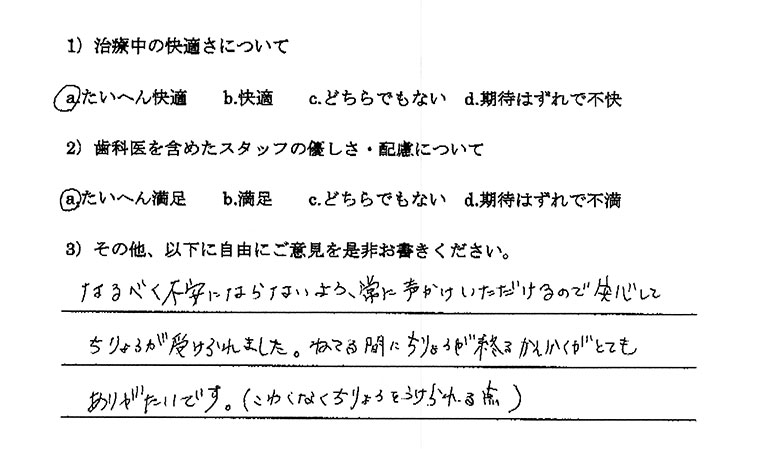 1）治療中の快適さについて
a.たいへん快適 b.快適 c.どちらでもない d.期待はずれで不快
2）歯科医を含めたスタッフの優しさ・配慮について
a.たいへん満足 b.満足 c.どちらでもない d.期待はずれで不満
3）その他、以下に自由にご意見を是非お書きください。
なるべく不安にならないよう、常に声かけいただけるので安心して
ちりょうが受けられました。ねてる間にちりょうが終るかんかくがとても
ありがたいです。（こわくなくちりょうをうけられる点）